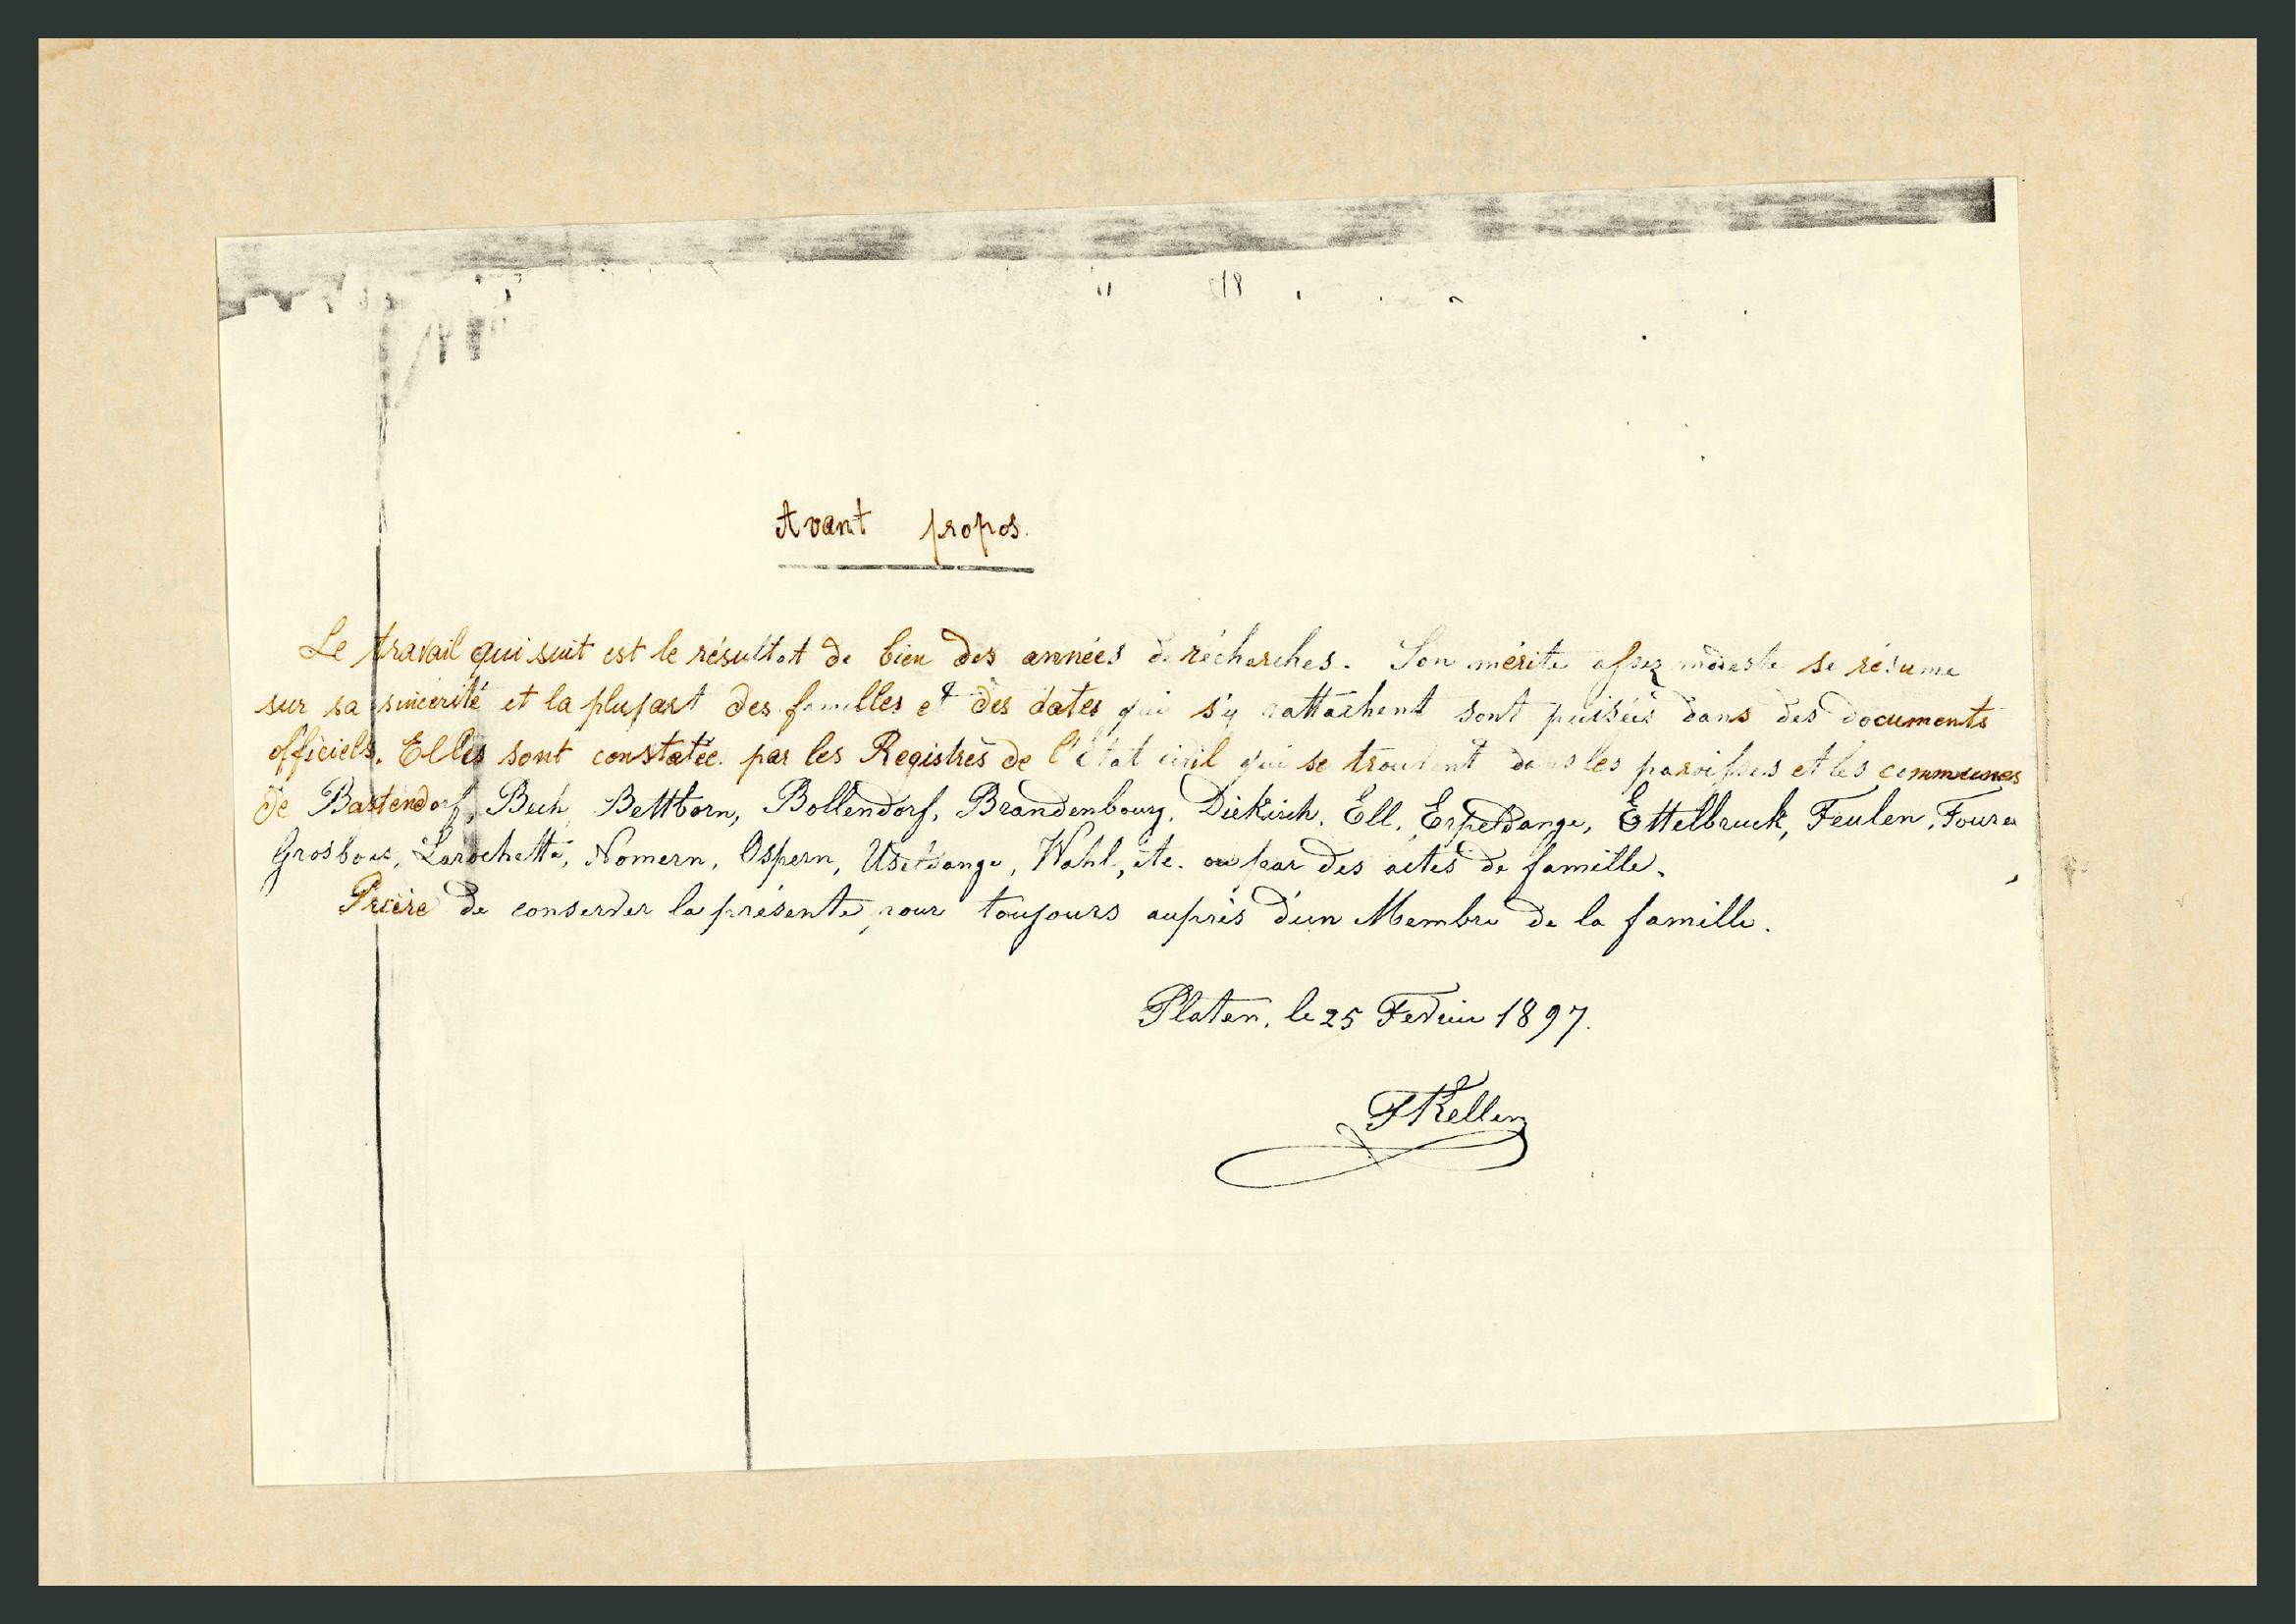 18
Avant propos.
Le travail qui suit est le résultat de bien des années de récherches. Son mérite assez modeste se résume
sur sa sincérité et la plupart des familles et des dates qui s'y rattachent sont puisées dans des documents
officiels. Elles sont constatée par les Registres de l'état civil qui se trouvent dans les paroisses et les communes
de Bastendorf, Bech, Bettborn, Bollendorf, Brandenbourg, Diekirch, Ell, Erpeldange, Ettelbruck, Feulen,
Grosbous, Larochette, Nomern, Ospern, Useldange, Wahl, etc. ou par des actes de famille.
Prière de conserver la présente, pour toujours auprès d'un Membre de la famille.
Platen, le 25 Fevrier 1897.
FKellen